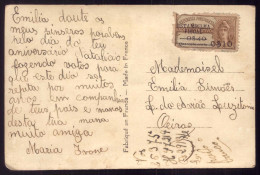 Emilia, dou-te os
meus sinceros parabens
pelo dia do teu
aniversario natalicio
fazendo votos para
que este dia se
repita por muitos
anos em companhia
de teus pais e manas
desta tua mana
muito amiga
Maria Ivone
Fabriqué en France - Made in France
0$10
Mademoiselle
Emilia Simões
Oeiras